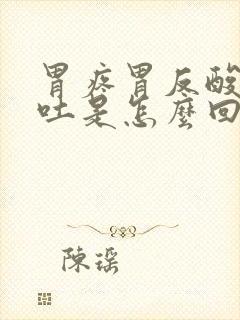 胃疼胃反酸
吐是怎麼回
陳瑶